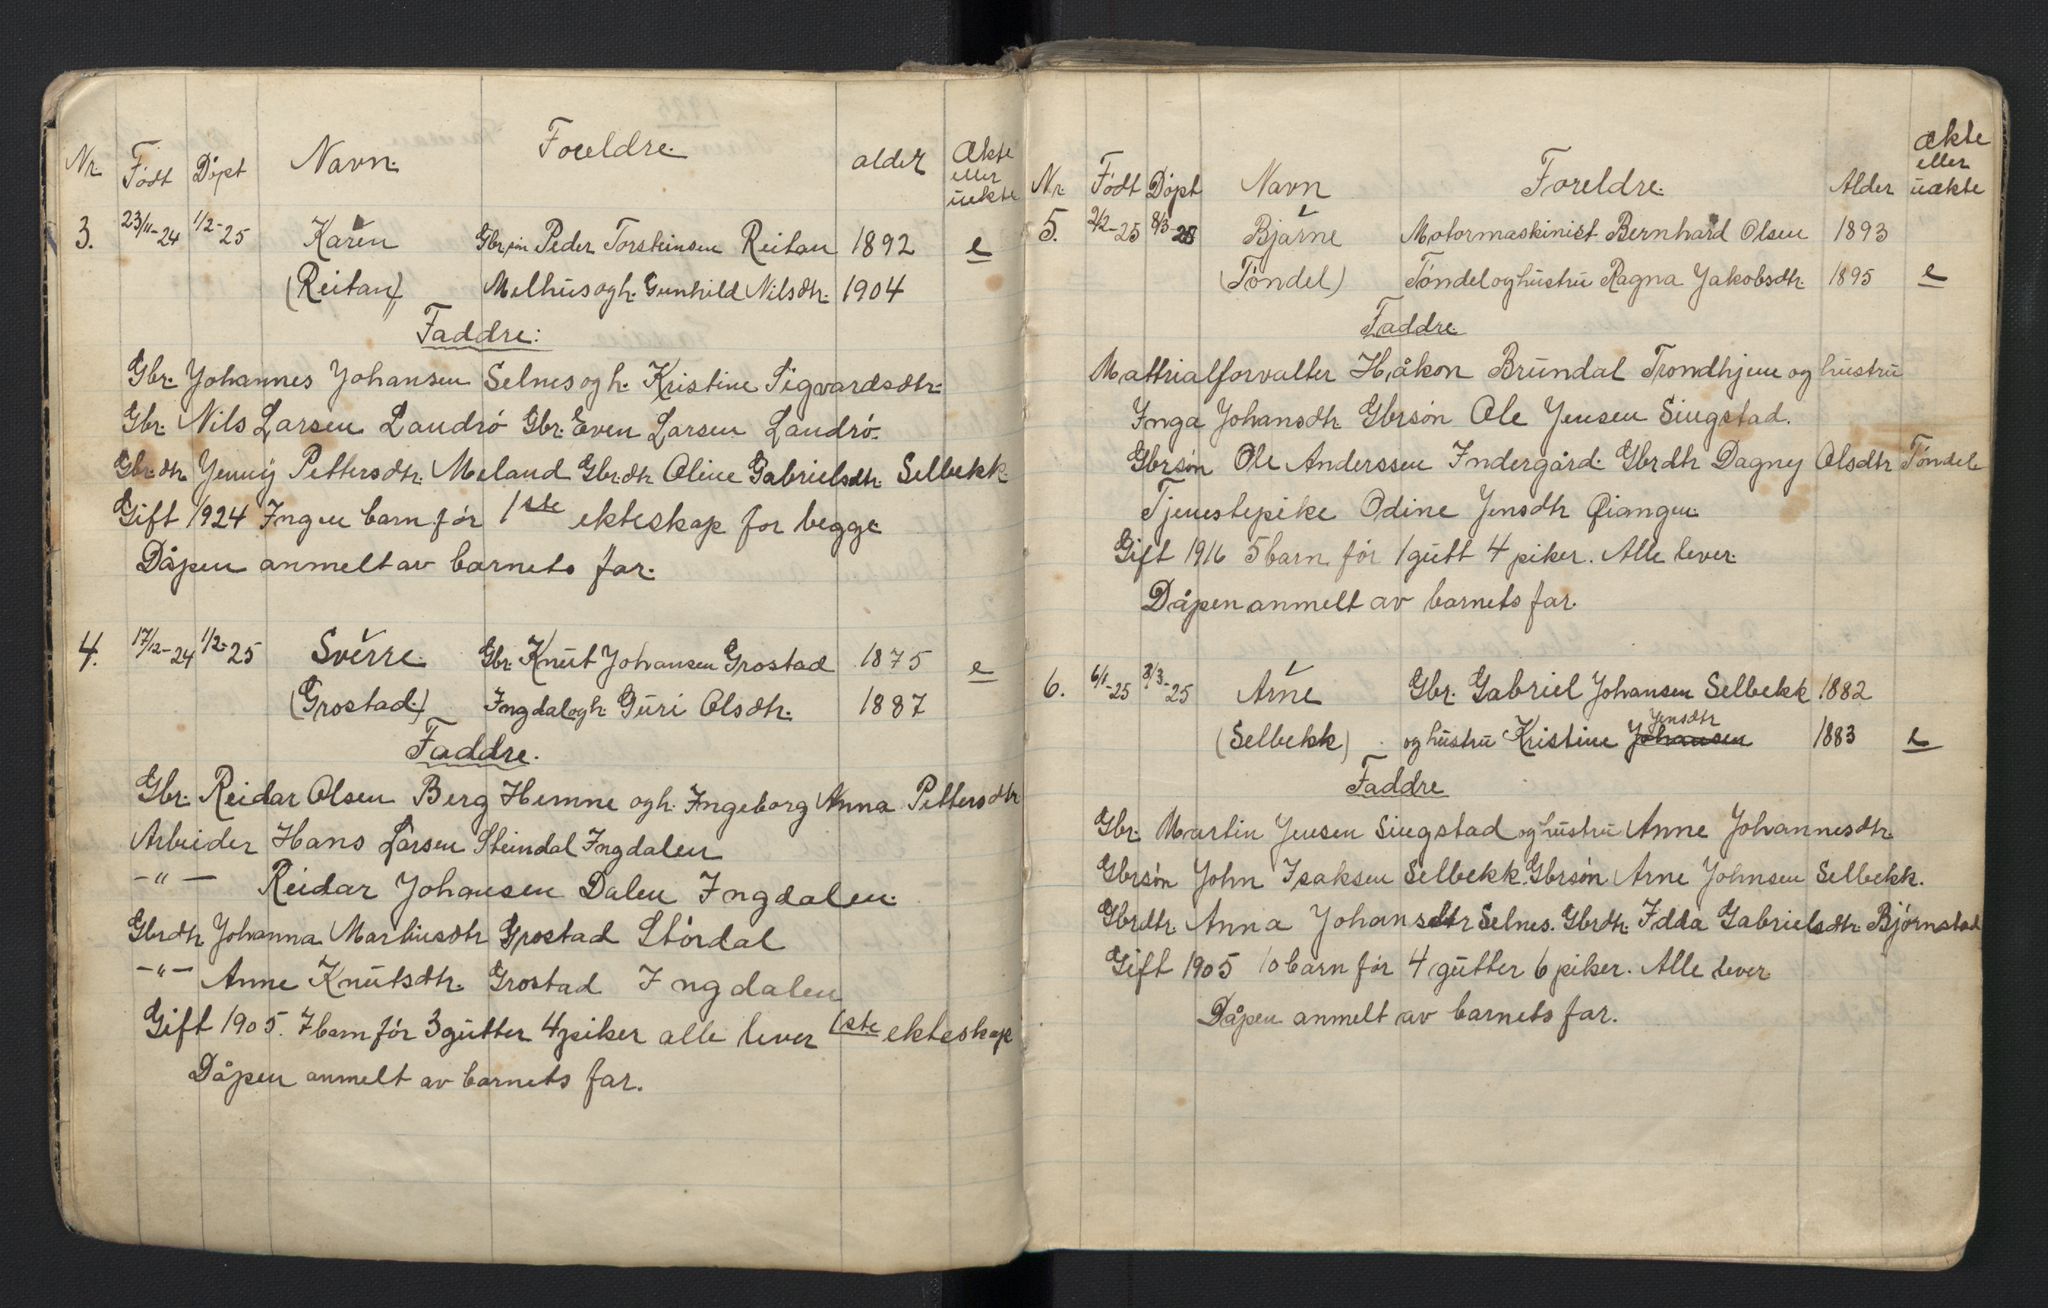 Nr. Født Døpt Navn. Foreldre. alder Ækte eller uekte
3. 23/11-24 1/2-25 Karen Gbr. Peder Torsteinsen Reitan 1892 e
(Reitan) Melhus og h. Gunhild Nilsdtr. 1904
Faddre:
Gbr. Johannes Johansen Selnes og h. Kristine Sigvardsdtr.
Gbr. Nils Larsen Landrö Gbr. Even Larsen Landrö.
Gbr.dtr Jenny Pettersdtr. Meland Gbr.dtr Oline Gabrielsdtr. Selbekk
Gift 1924 Ingen barn før 1ste ekteskap for begge
Dåpen anmelt av barnets far.
4. 17/12-24 1/2-25 Sverre. Gbr. Knut Johansen Grostad 1875 e
(Grostad.) Ingdal og h. Guri Olsdtr. 1887
Faddre.
Gbr. Reidar Olsen Berg Hemne og h. Ingeborg Anna Pettersdtr
Arbeider Hans Larsen Steindal Ingdalen
-"- Reidar Johansen Dalen Ingdalen.
Gbrdtr Johanna Martinsdtr Grostad Stördal
-"- Anne Knutsdtr. Grostad Ingdalen
Gift 1905. 7 barn før 3 gutter 4 piker alle lever 1ste ekteskap
Dåpen anmelt av barnets far.
Nr. Født Døpt Navn Foreldre. Alder ækte eller uækte
5. 2/2-25 8/3-25 Bjarne Motormaskinist Bernhard Olsen 1893
(Tøndel) Tøndel og hustru Ragna Jakobsdtr. 1895 e
Faddre
Mattrialforvalter Håkon Brundal Trondhjem og hustru
Inga Johansdtr Gbrsøn Ole Jensen Singstad.
Gbrsøn Ole Anderssen Indergård. Gbrdtr Dagny Olsdtr Tøndel
Tjenestepike Odine Jensdtr
Gift 1916 5 barn før 1 gutt 4 piker. Alle lever.
Dåpen anmelt av barnets far.
6. 6/1-25 8/3-25 Arne Gbr. Gabriel Johansen Selbekk 1882
(Selbekk) og hustru Kristine Johansen Jensdtr 1883 e
Faddre
Gbr. Martin Jensen Singstad og hustru Anne Johannesdtr.
Gbrsøn John Isaksen Selbekk. Gbrsøn Arne Johnsen Selbekk.
Gbrdtr. Anna Johansdtr Selnes. Gbrdtr. Idda Gabrielsdtr. Bjørnstad
Gift 1905 10 barn før 4 gutter 6 piker. Alle lever
Dåpen anmelt av barnets far.